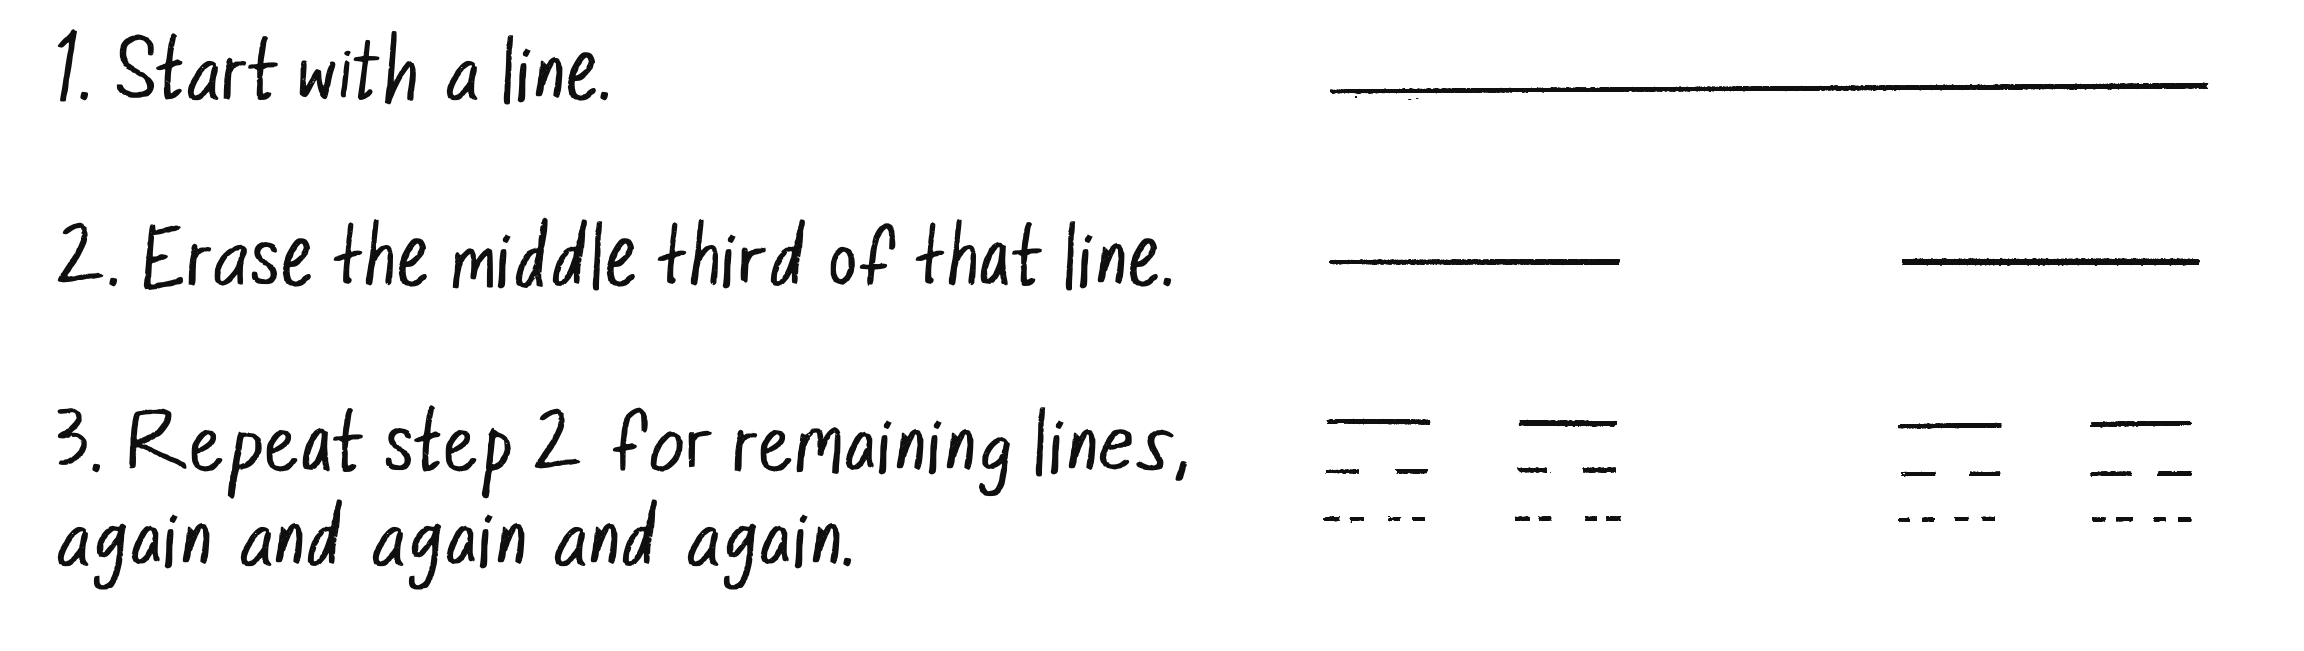 1. Start with a line.
2. Erase the middle third of that line.
3. Repeat step 2 for remaining lines,
again and again and again.